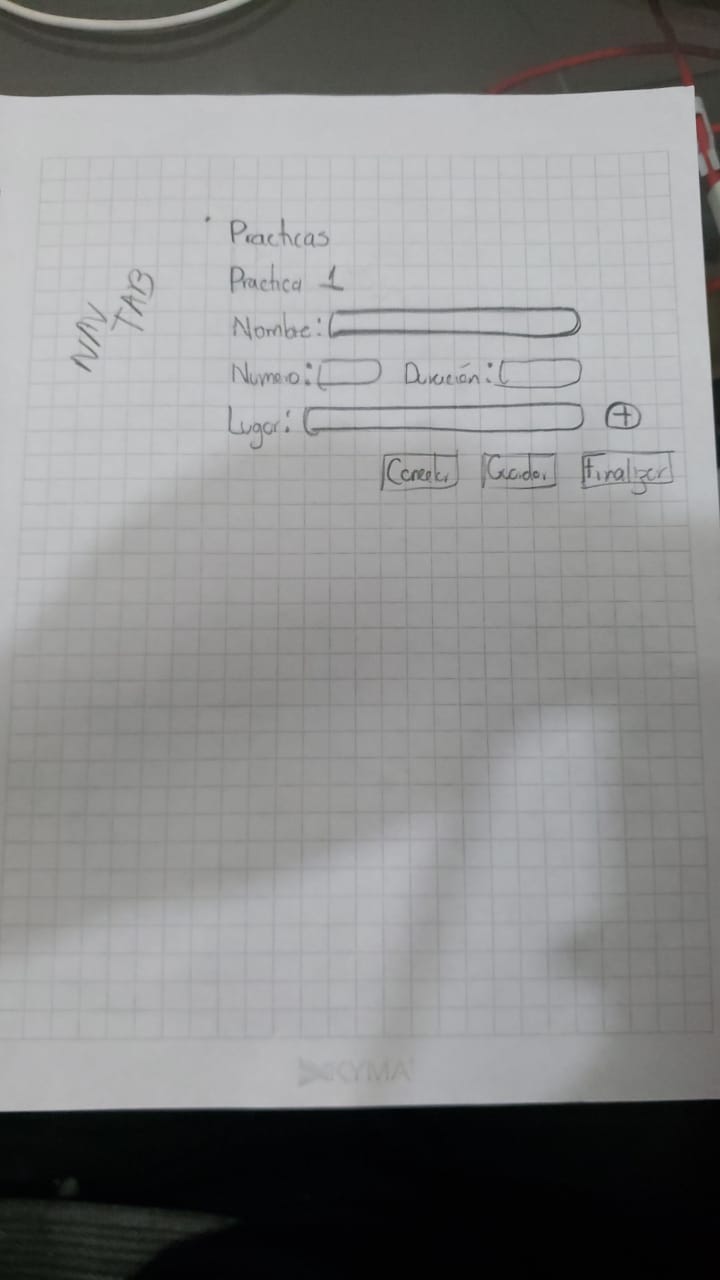 NAV
TAB
Practicas
Practica 1
Nombre:
Numero: Duración:
Lugar: +
Finalizar
KYMA